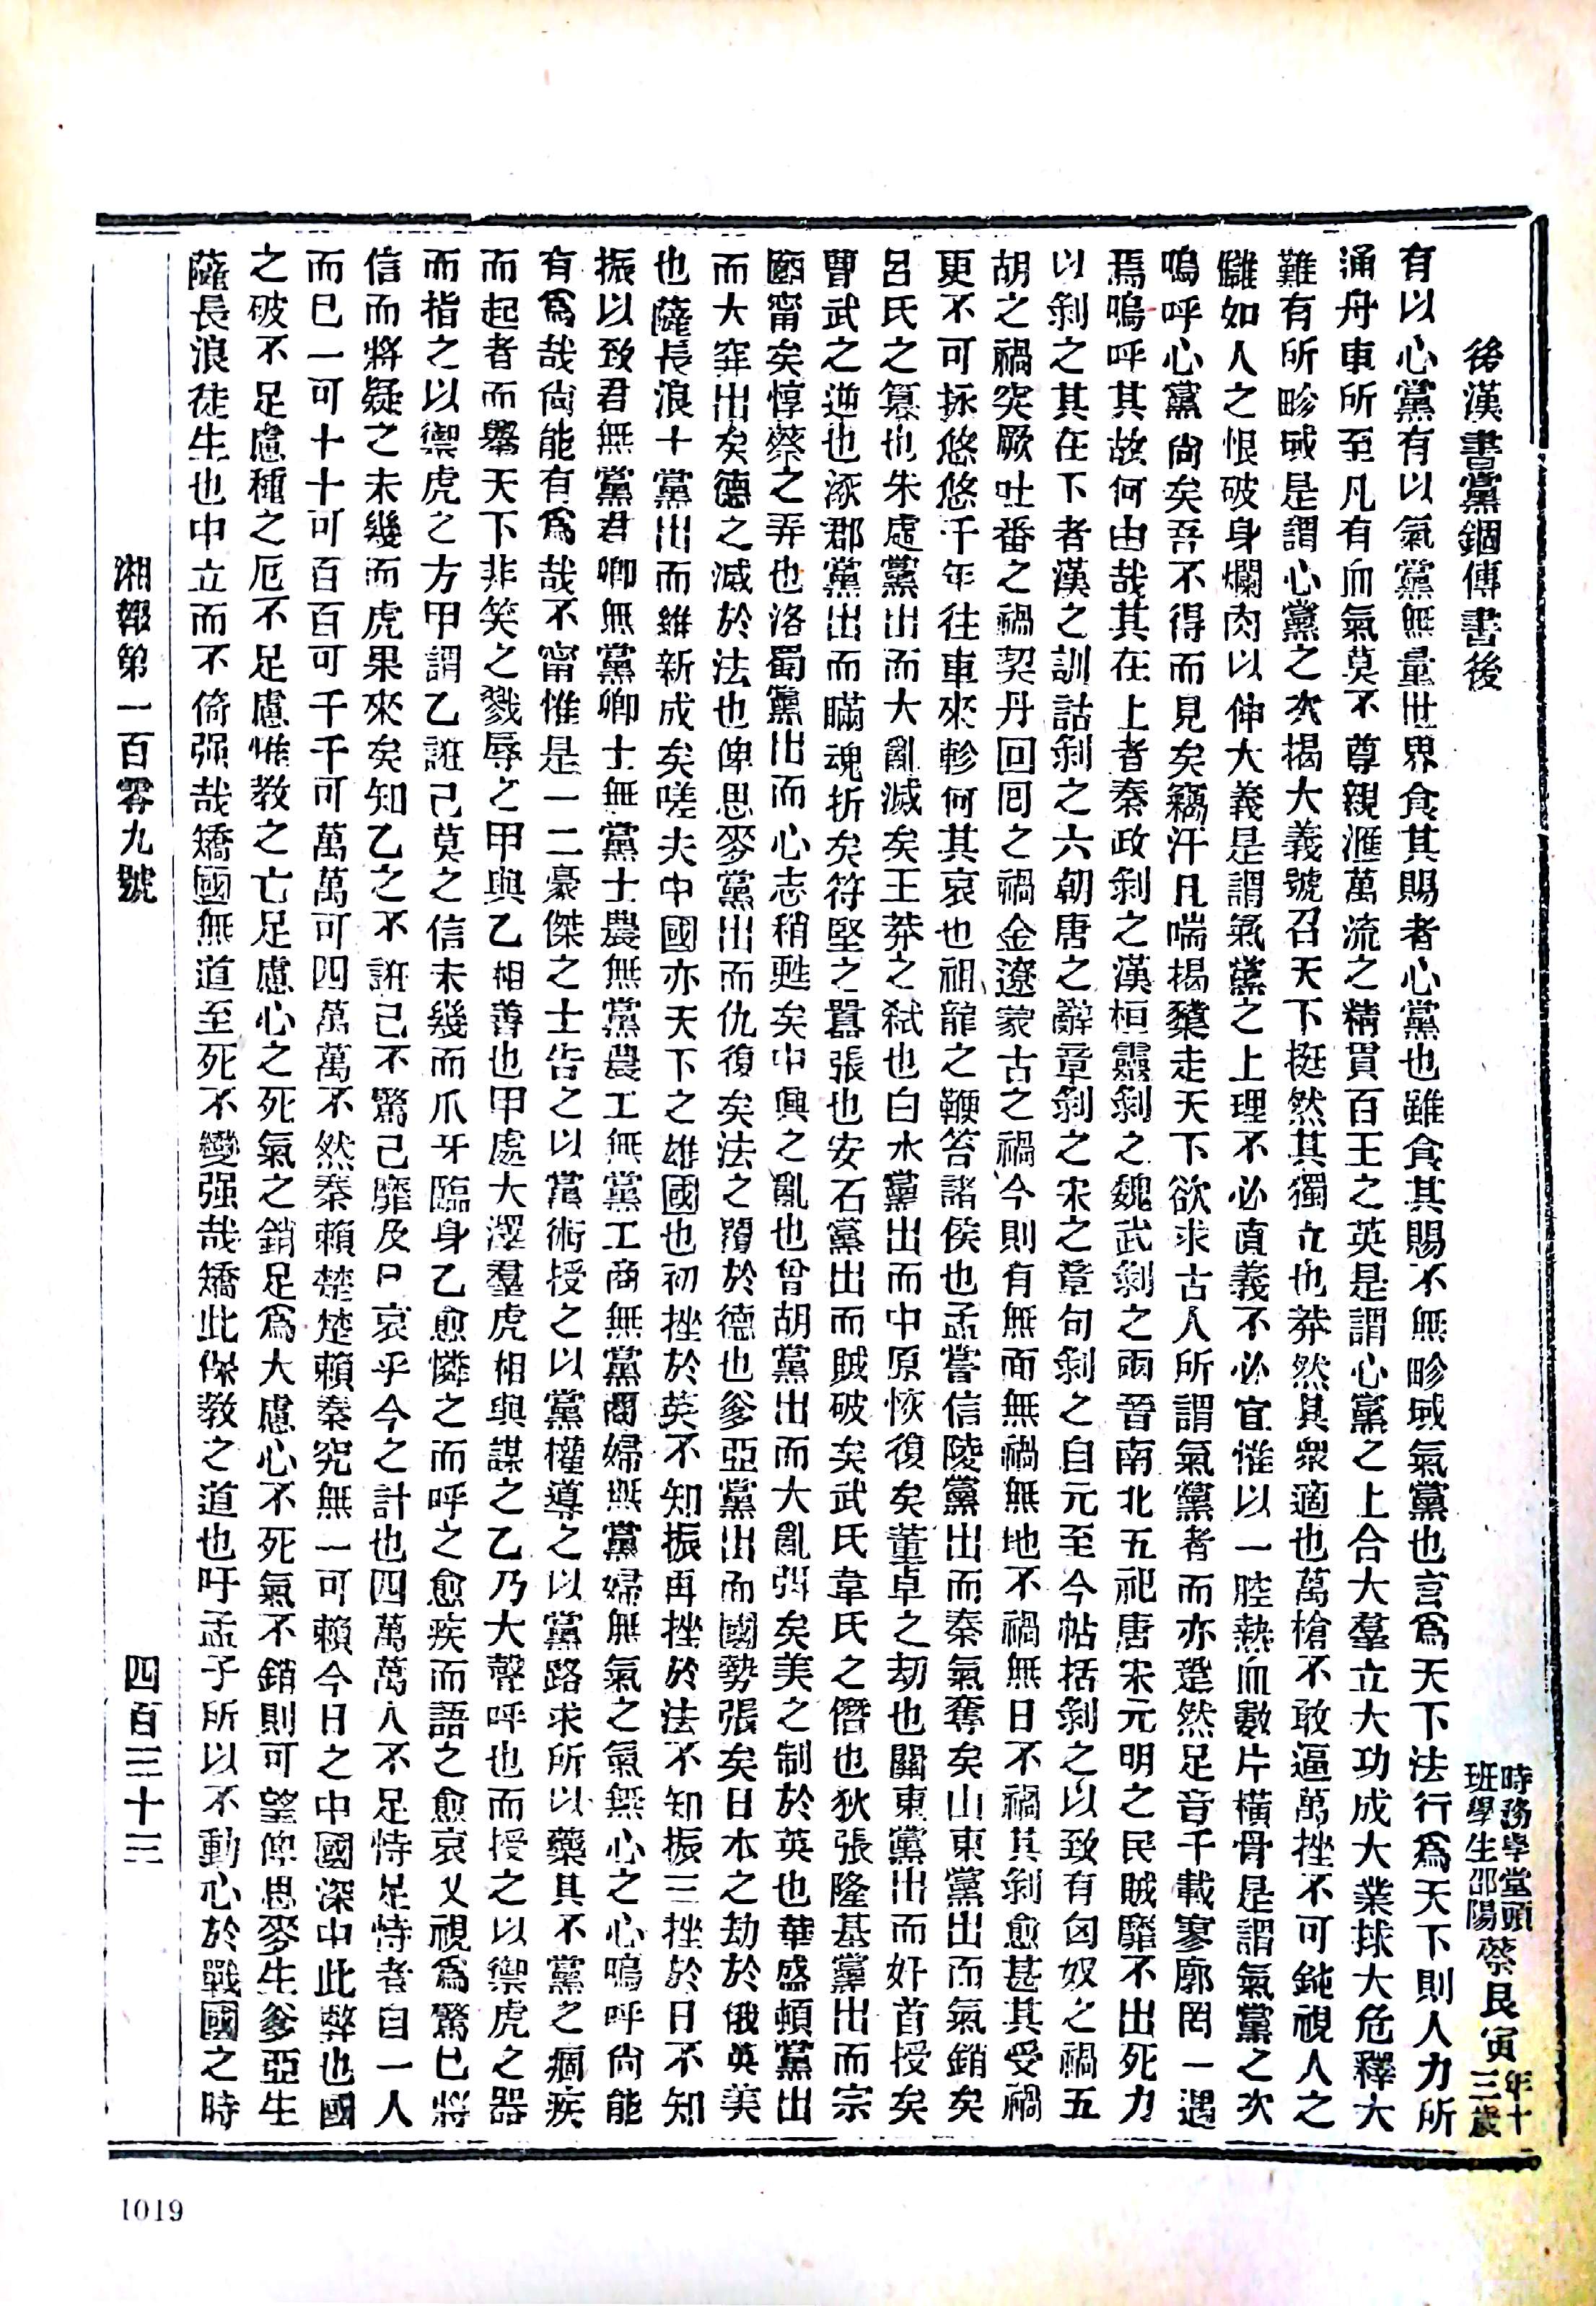 後漢書黨錮傳書後
時務學堂頭班學生邵陽蔡艮寅年十三歲
有以心黨有以氣黨無量世界食其賜者心黨也雖食其賜不無畛域氣黨也言爲天下法行爲天下則人力所
通舟車所至凡有血氣莫不尊親滙萬流之精貫百王之英是謂心黨之上合大羣立大功成大業拯大危釋大
難有所畛域是謂心黨之次揭大義號召天下挺然其獨立也莽然其衆適也萬槍不敢逼萬挫不可鈍視人之
讎如人之恨破身爛肉以伸大義是謂氣黨之上理不必直義不必宜惟以一腔熱血數片橫骨是謂氣黨之次
嗚呼心黨尙矣吾不得而見矣竊汗且喘揭櫫走天下欲求古人所謂氣黨者而亦跫然足音千載寥廓罔一遇
焉嗚呼其故何由哉其在上者秦政剝之漢桓靈剝之魏武剝之兩晉南北五祀唐宋元明之民賊靡不出死力
以剝之其在下者漢之訓詁剝之六朝唐之辭章剝之宋之章句剝之自元至今帖括剝之以致有匈奴之禍五
胡之禍突厥吐番之禍契丹回回之禍金遼蒙古之禍今則有無面無禍無地不禍無日不禍其剝愈甚其受禍
更不可拯悠悠千年往車來軫何其哀也祖龍之鞭笞諸侯也孟嘗信陵黨出而秦氣奪矣山東黨出而氣銷矣
呂氏之簒也朱虛黨出而大亂滅矣王莽之弒也白水黨出而中原恢復矣董卓之劫也關東黨出而奸首授矣
曹武之逆也涿郡黨出而瞞魂折矣符堅之嚣張也安石黨出而賊破矣武氏韋氏之僭也狄張隆基黨出而宗
社甯矣惇蔡之弄也洛蜀黨出而心志稍甦矣中興之亂也曾胡黨出而大亂弭矣美之制於英也華盛頓黨出
而大穽出矣德之滅於法也俾思麥黨出而仇復矣法之躓於德也爹亞黨出而國勢張矣日本之劫於俄英美
也薩長浪士黨出而維新成矣嗟夫中國亦天下之雄國也初挫於英不知振再挫於法不知振三挫於日不知
振以致君無黨君卿無黨卿士無黨士農無黨農工無黨工商無黨商婦無黨婦無氣之氣無心之心嗚呼尙能
有爲哉尙能有爲哉不甯惟是一二豪傑之士告之以黨術授之以黨權導之以黨路求所以藥其不黨之痼疾
而起者而舉天下非笑之戮辱之甲與乙相善也甲處大澤羣虎相與謀之乙乃大聲呼也而授之以禦虎之器
而指之以禦虎之方甲謂乙誑己莫之信未幾而爪牙臨身乙愈憐之而呼之愈疾而語之愈哀乂視爲驚己將
信而將疑之未幾而虎果來矣知乙之不誑己不驚己靡及曰哀乎今之計也四萬萬人不足恃足恃者自一人
而已一可十十可百百可千千可萬萬可四萬萬不然秦賴楚楚賴秦究無一可賴今日之中國深中此弊也國
之破不足慮種之厄不足慮惟教之亡足慮心之死氣之銷足爲大慮心不死氣不銷則可望俾思麥生爹亞生
薩長浪徒生也中立而不倚强哉矯國無道至死不變强哉矯此保教之道也吁孟子所以不動心於戰國之時
湘報第一百零九號
四百三十三
1019